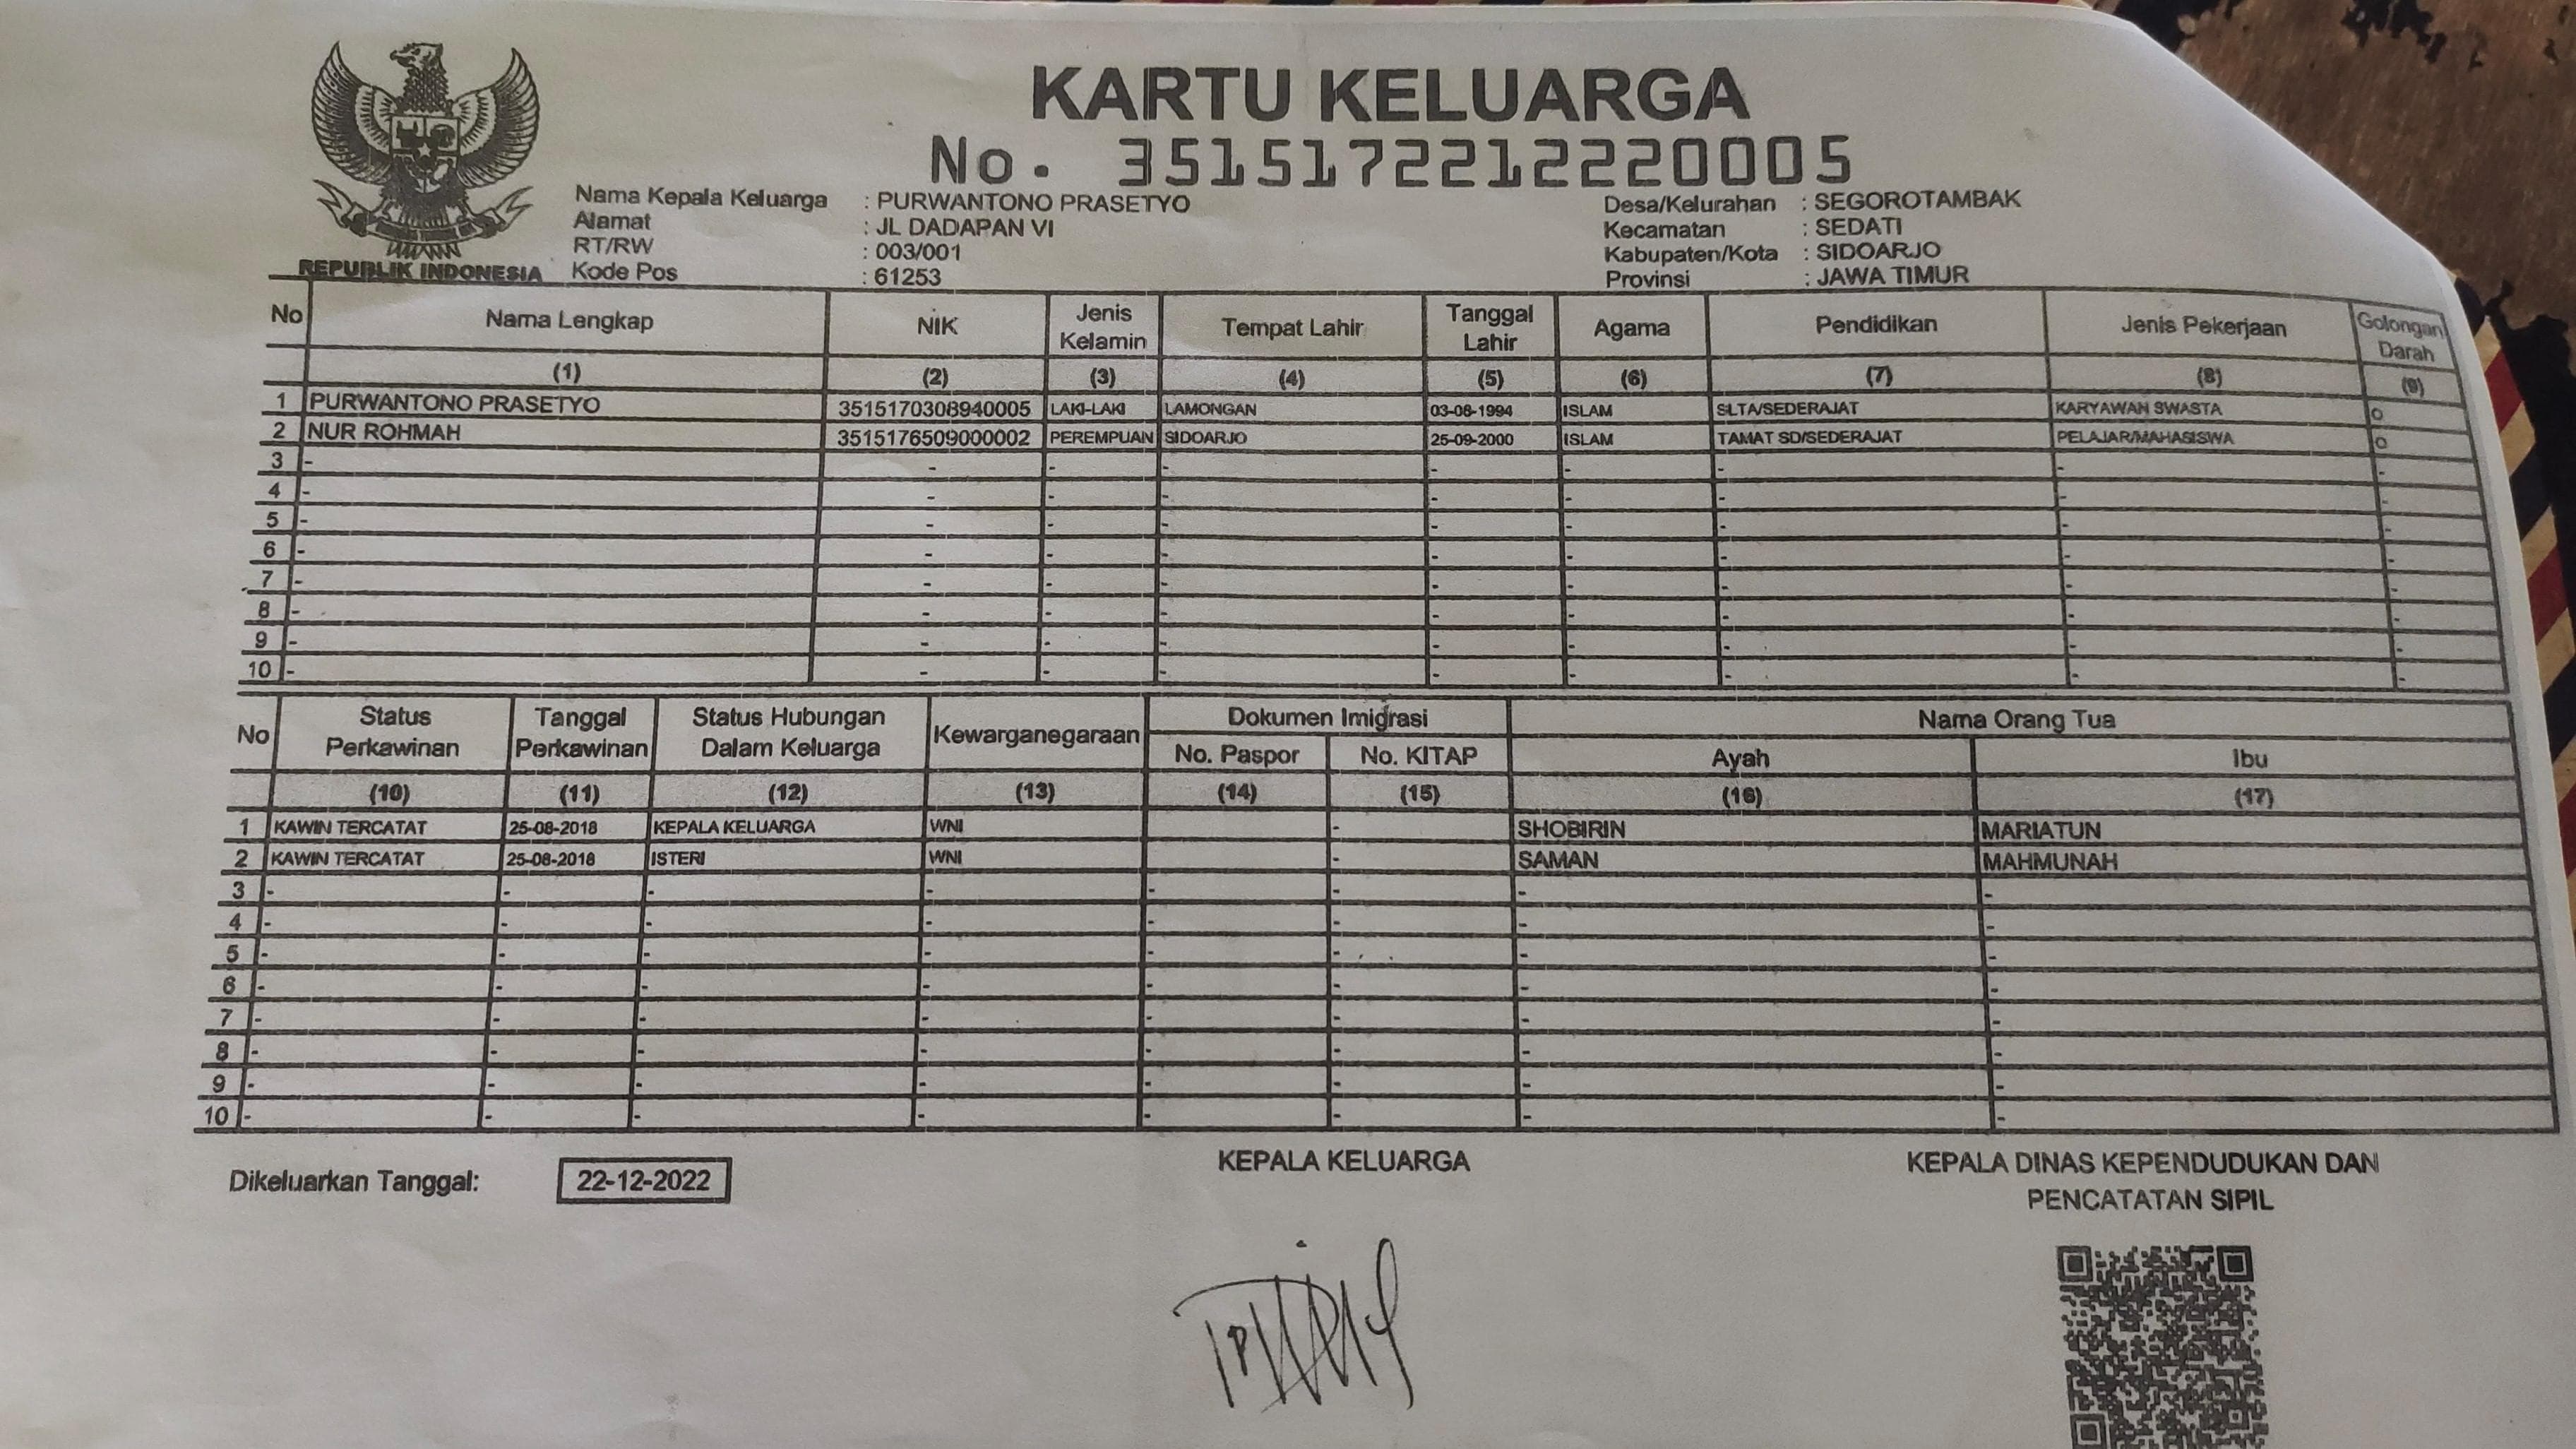 KARTU KELUARGA
No. 3515172212220005
Nama Kepala Keluarga : PURWANTONO PRASETYO
Alamat : JL DADAPAN VI
RT/RW : 003/001
Kode Pos : 61253
Desa/Kelurahan : SEGOROTAMBAK
Kecamatan : SEDATI
Kabupaten/Kota : SIDOARJO
Provinsi : JAWA TIMUR
REPUBLIK INDONESIA
No Nama Lengkap NIK Jenis Kelamin Tempat Lahir Tanggal Lahir Agama Pendidikan Jenis Pekerjaan Golongan Darah
(1) (2) (3) (4) (5) (6) (7) (8) (9)
1 PURWANTONO PRASETYO 3515170308940005 LAKI-LAKI LAMONGAN 03-08-1994 ISLAM SLTA/SEDERAJAT KARYAWAN SWASTA O
2 NUR ROHMAH 3515176509000002 PEREMPUAN SIDOARJO 25-09-2000 ISLAM TAMAT SD/SEDERAJAT PELAJAR/MAHASISWA O
3 - - - - - - - - -
4 - - - - - - - - -
5 - - - - - - - - -
6 - - - - - - - - -
7 - - - - - - - - -
8 - - - - - - - - -
9 - - - - - - - - -
10 - - - - - - - - -
No Status Perkawinan Tanggal Perkawinan Status Hubungan Dalam Keluarga Kewarganegaraan Dokumen Imigrasi Nama Orang Tua
No. Paspor No. KITAP Ayah Ibu
(10) (11) (12) (13) (14) (15) (16) (17)
1 KAWIN TERCATAT 25-08-2018 KEPALA KELUARGA WNI - SHOBIRIN MARIATUN
2 KAWIN TERCATAT 25-08-2018 ISTERI WNI - SAMAN MAHMUNAH
3 - - - - - - - -
4 - - - - - - - -
5 - - - - - - - -
6 - - - - - - - -
7 - - - - - - - -
8 - - - - - - - -
9 - - - - - - - -
10 - - - - - - - -
Dikeluarkan Tanggal: 22-12-2022
KEPALA KELUARGA
KEPALA DINAS KEPENDUDUKAN DAN
PENCATATAN SIPIL